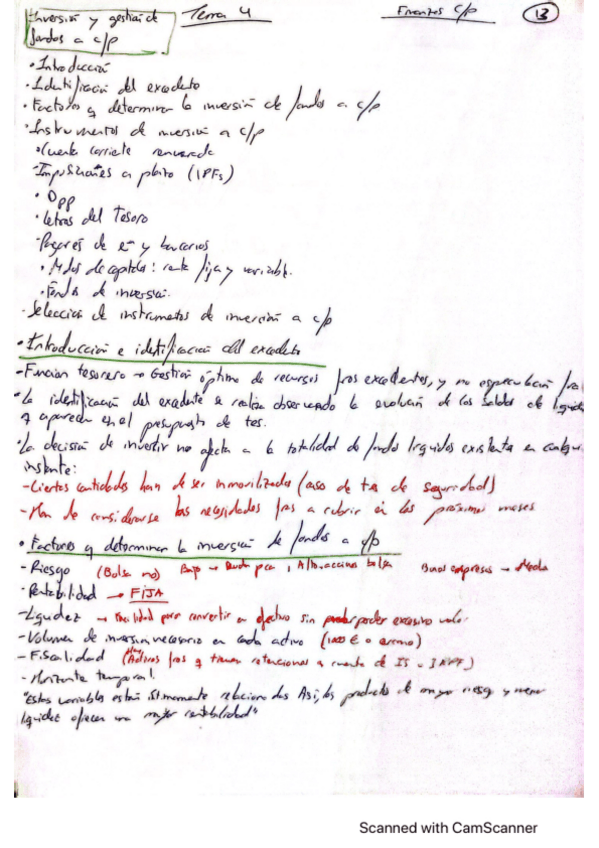 Inversión y gestión de Tema 4 Finanzas C/p 13
fondos a c/p
• Introducción
• Identificación del excedente
• Factores q determinan la inversión de fondos a c/p
• Instrumentos de inversión a c/p
• Cuenta corriente remunerada
- Imposiciones a plazo (IPFs)
• Opp
• Letras del Tesoro
- Pagarés de e^n y bancarios
• Mdos de capitales: renta fija y variable.
• Fondos de inversión.
- Selección de instrumentos de inversión a c/p
• Introducción e identificación del excedente
- Función tesorero → Gestión óptima de recursos fros excedentes, y no especulación fra
• La identificación del excedente se realiza observando la evolución de los saldos de liquidez
q aparecen en el presupuesto de tes.
• La decisión de invertir no afecta a la totalidad de fondos líquidos existentes en cualquier
instante:
- Ciertas cantidades han de ser inmovilizadas (caso de tes de seguridad)
- Han de considerarse las necesidades fras a cubrir en los próximos meses
• Factores q determinan la inversión de fondos a c/p
- Riesgo (Bolsa no) Bajo → Deuda pca, Alto: acciones bolsa Buenas empresas →
• Rentabilidad → FIJA
- Liquidez → Facilidad para convertir en efectivo sin perder excesivo valor
- Volumen de inversión necesario en cada activo (1000 € o
- Fiscalidad (Activos fros q tienen retenciones a cuenta de IS o IRPF)
- Horizonte temporal.
"Estas variables están íntimamente relacionadas Así, los productos de mayor riesgo y menor
liquidez ofrecen una mejor rentabilidad"
Scanned with CamScanner